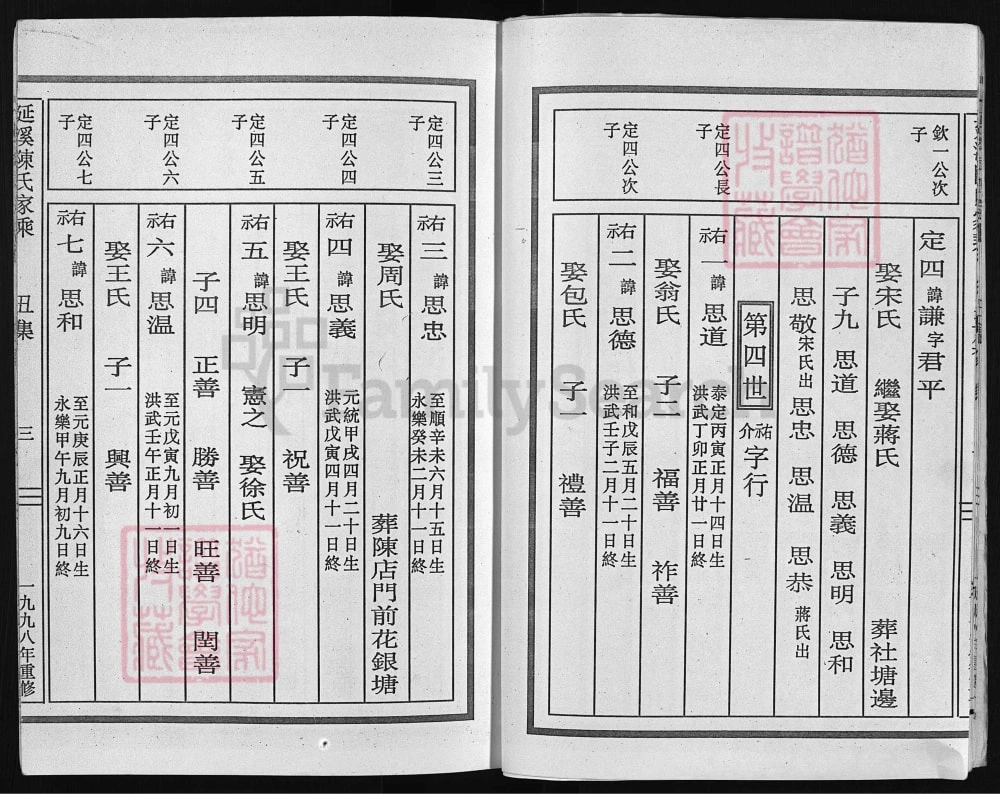 欽一公次子
定四 諱謙字君平
娶宋氏 繼娶蔣氏 葬社塘邊
子九 思道 思德 思義 思明 思和
思敬宋氏出 思忠 思溫 思恭蔣氏出
第四世 祐介字行
定四公長子
祐一 諱思道 泰定丙寅正月十四日生 洪武丁卯正月廿一日終
娶翁氏 子二 福善 祚善
定四公次子
祐二 諱思德 至和戊辰五月二十日生 洪武壬子二月十一日終
娶包氏 子一 禮善
定四公三子
祐三 諱思忠 至順辛未六月十五日生 永樂癸未二月十一日終
娶周氏 葬陳店門前花銀塘
定四公四子
祐四 諱思義 元統甲戌四月二十日生 洪武戊寅四月十一日終
娶王氏 子一 祝善
定四公五子
祐五 諱思明 憲之 娶徐氏
子四 正善 勝善 旺善 閏善
定四公六子
祐六 諱思温 至元戊寅九月初一日生 洪武壬午正月十一日終
娶王氏 子一 興善
定四公七子
祐七 諱思和 至元庚辰正月十六日生 永樂甲午九月初九日終
延溪陳氏家乘 丑集 三 一九九八年重修
FamilySearch